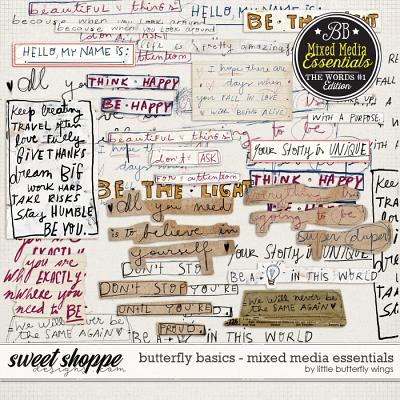 beautiful things
because when you look around
BE THE LIGHT
HELLO, MY NAME IS:
don't ASK
for attention
pretty amazing
BB
Mixed Media
Essentials
THE WORDS #1
Edition
All you
THINK · HAPPY
BE · HAPPY
I hope there are
days when
you FALL IN LOVE
with BEING ALIVE
WITH A PURPOSE
Keep creating
TRAVEL often
love fully
GIVE THANKS
dream BIG
WORK HARD
TAKE RISKS
Stay HUMBLE
BE YOU.
beautiful things
don't ASK
for attention
your Story is UNIQUE
BE · THE · LIGHT
THINK HAPPY
All you need
is to believe in
yourself
going to be
super duper
your Story is UNIQUE
DON'T STOP
DON'T STOP
UNTIL YOU'RE
PROUD
BE A IN THIS WORLD
you are
exactly
where you
need to BE
we will never be
the SAME AGAIN
we will never be
the SAME AGAIN
BE A IN THIS WORLD
sweet shoppe
designs.com
butterfly basics - mixed media essentials
by little butterfly wings